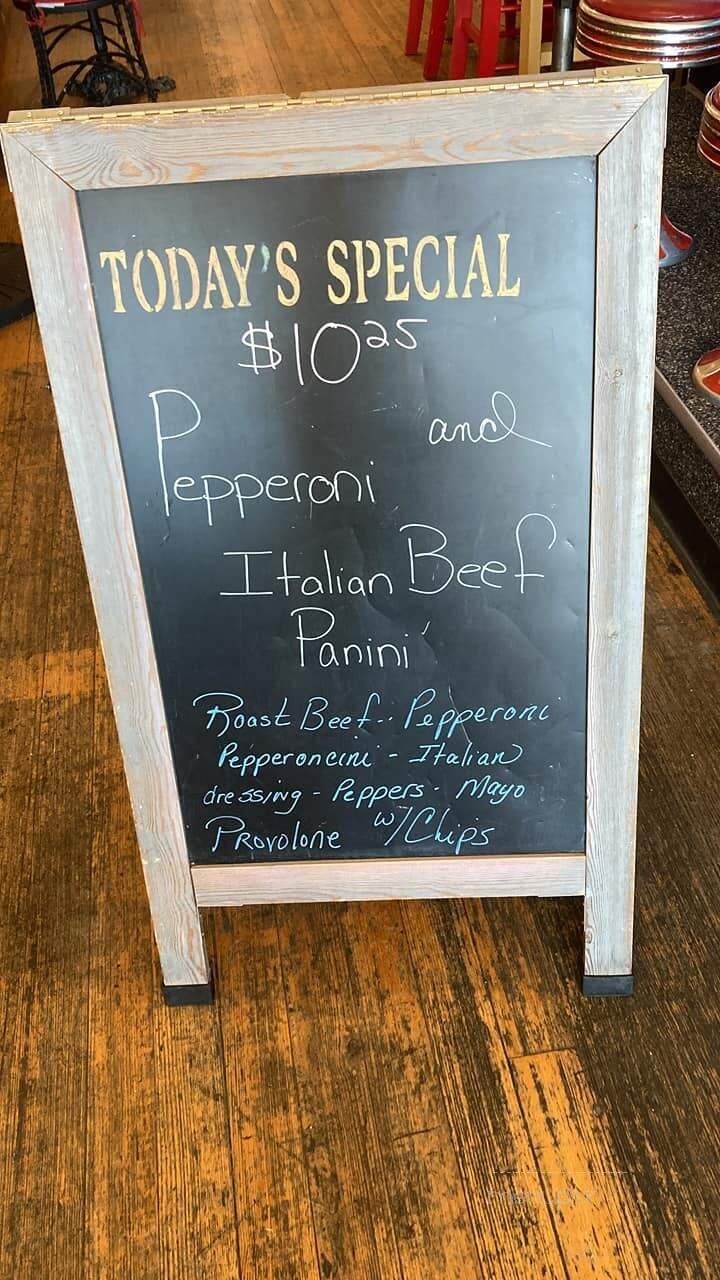 TODAY'S SPECIAL
$10 25
Pepperoni and
Italian Beef
Panini
Roast Beef - Pepperoni
Pepperoncini - Italian
dressing - Peppers - Mayo
Provolone w/Chips